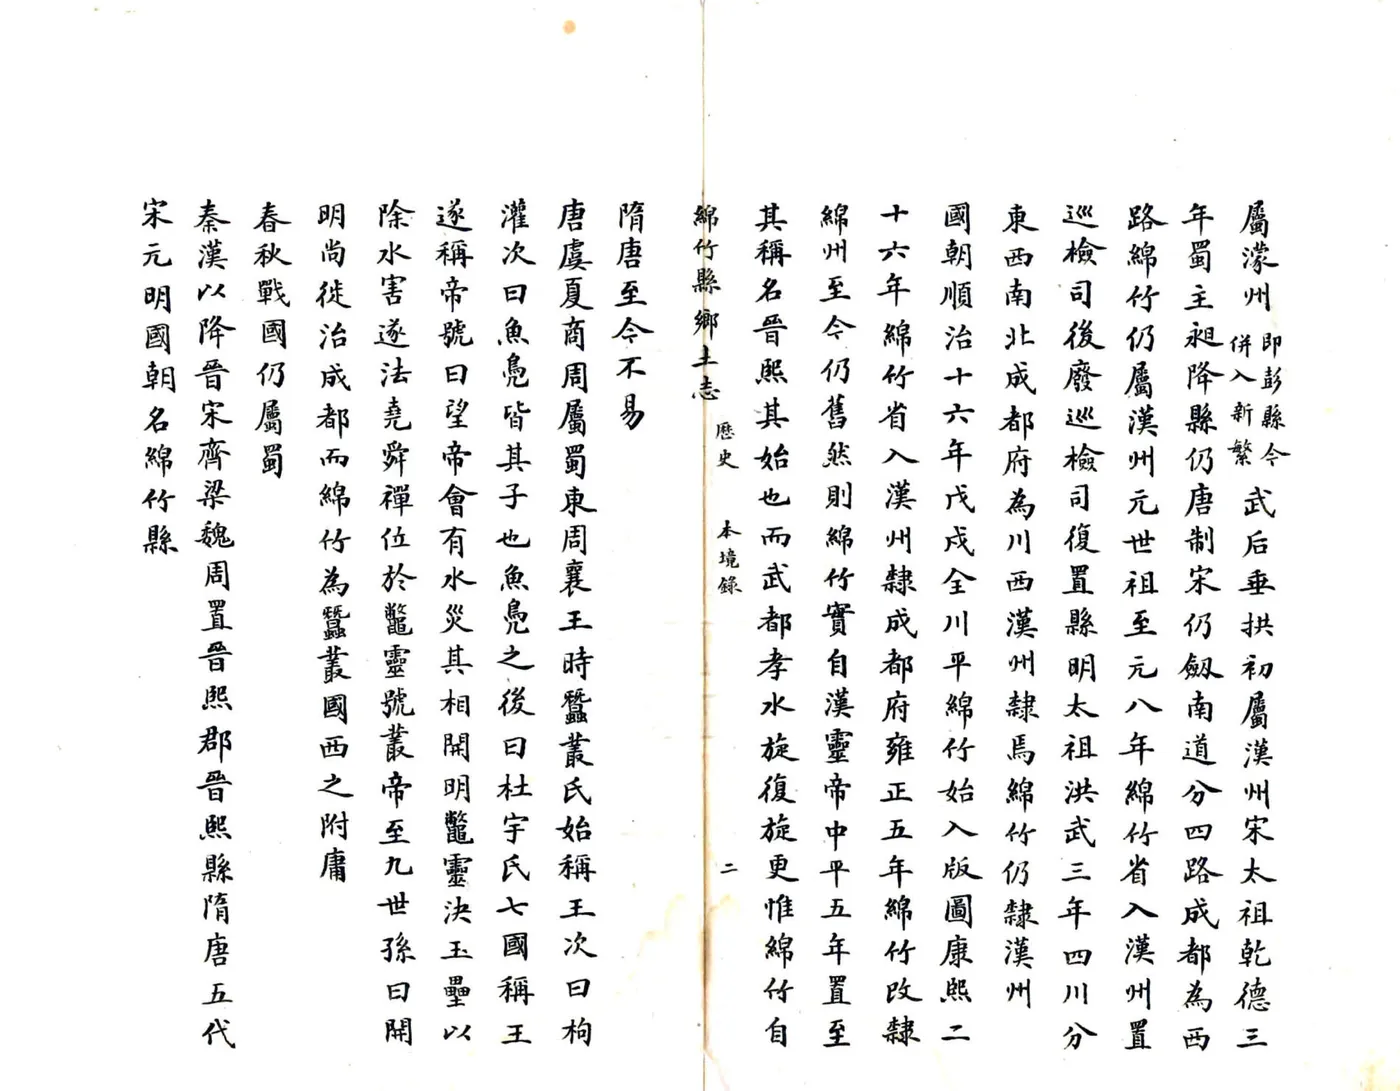 屬濛州即彭縣今併入新繁武后垂拱初屬漢州宋太祖乾德三
年蜀主昶降縣仍唐制宋仍劔南道分四路成都為西
路綿竹仍屬漢州元世祖至元八年綿竹省入漢州置
巡檢司後廢巡檢司復置縣明太祖洪武三年四川分
東西南北成都府為川西漢州隸焉綿竹仍隸漢州
國朝順治十六年戊戍全川平綿竹始入版圖康熙二
十六年綿竹省入漢州隸成都府雍正五年綿竹改隸
綿州至今仍舊然則綿竹實自漢靈帝中平五年置至
其稱名晉熙其始也而武都孝水旋復旋更惟綿竹自
綿竹縣鄉土志 歷史 本境錄 二
隋唐至今不易
唐虞夏商周屬蜀東周襄王時蠶叢氏始稱王次曰枸
灌次曰魚鳧皆其子也魚鳧之後曰杜宇氏七國稱王
遂稱帝號曰望帝會有水災其相開明鼈靈決玉壘以
除水害遂法堯舜禪位於鼈靈號叢帝至九世孫曰開
明尚徙治成都而綿竹為蠶叢國西之附庸
春秋戰國仍屬蜀
秦漢以降晉宋齊梁魏周置晉熙郡晉熙縣隋唐五代
宋元明國朝名綿竹縣